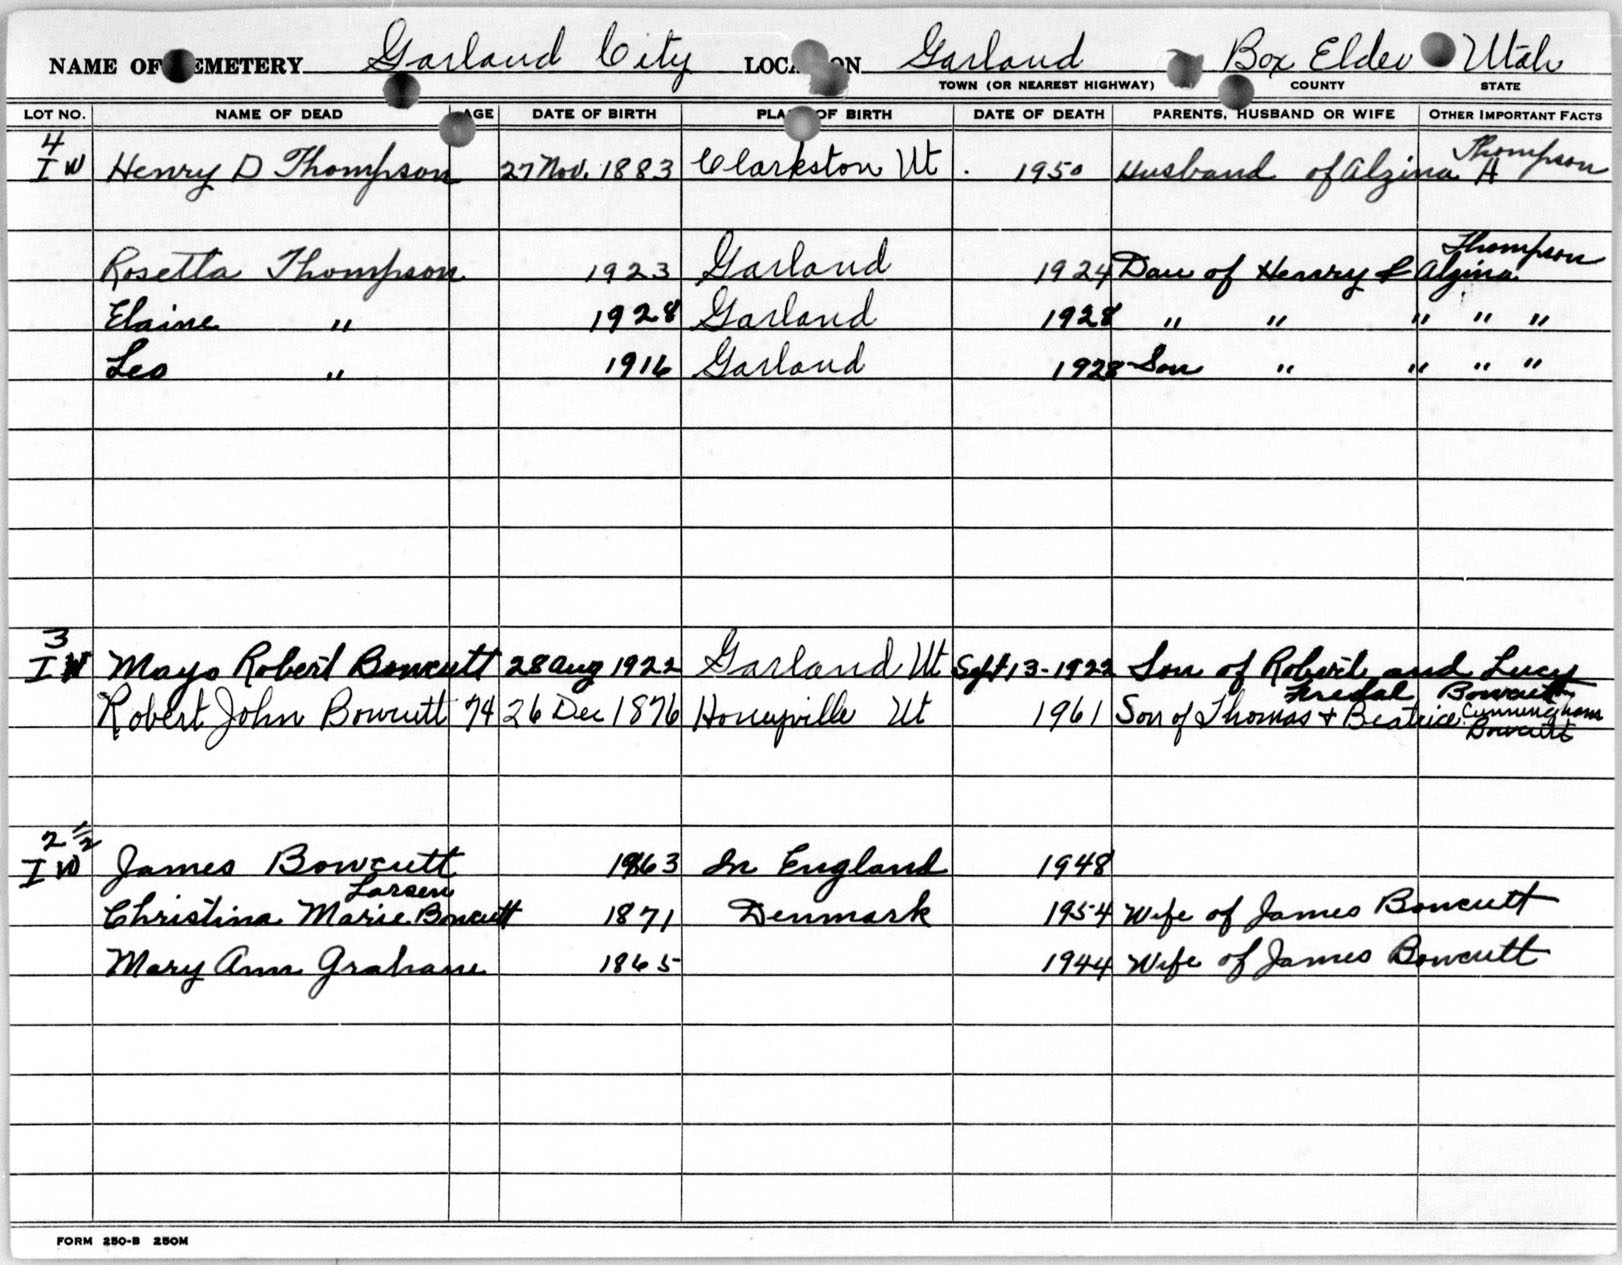 NAME OF CEMETERY Garland City LOCATION Garland Box Elder Utah
TOWN (OR NEAREST HIGHWAY) COUNTY STATE
LOT NO. NAME OF DEAD AGE DATE OF BIRTH PLACE OF BIRTH DATE OF DEATH PARENTS, HUSBAND OR WIFE OTHER IMPORTANT FACTS
4 Thompson
I W Henry D Thompson 27 Nov. 1883 Clarkston Ut 1950 Husband of Alzina A
Thompson
Rosetta Thompson 1923 Garland 1924 Dau of Henry & Alzina
Elaine " 1928 Garland 1928 " " " " "
Leo " 1916 Garland 1928 Son " " " "
3
I W Mayo Robert Bowcutt 28 Aug 1922 Garland Ut Sept 13-1922 Son of Robert and Lucy
Bowcutt
Robert John Bowcutt 74 26 Dec 1876 Honeyville Ut 1961 Son of Thomas & Beatrice Cunningham
Bowcutt
2 1/2
I W James Bowcutt 1863 In England 1948
Larsen
Christina Marie Bowcutt 1871 Denmark 1954 Wife of James Bowcutt
Mary Ann Grahame 1865 1944 Wife of James Bowcutt
FORM 250-B 250M